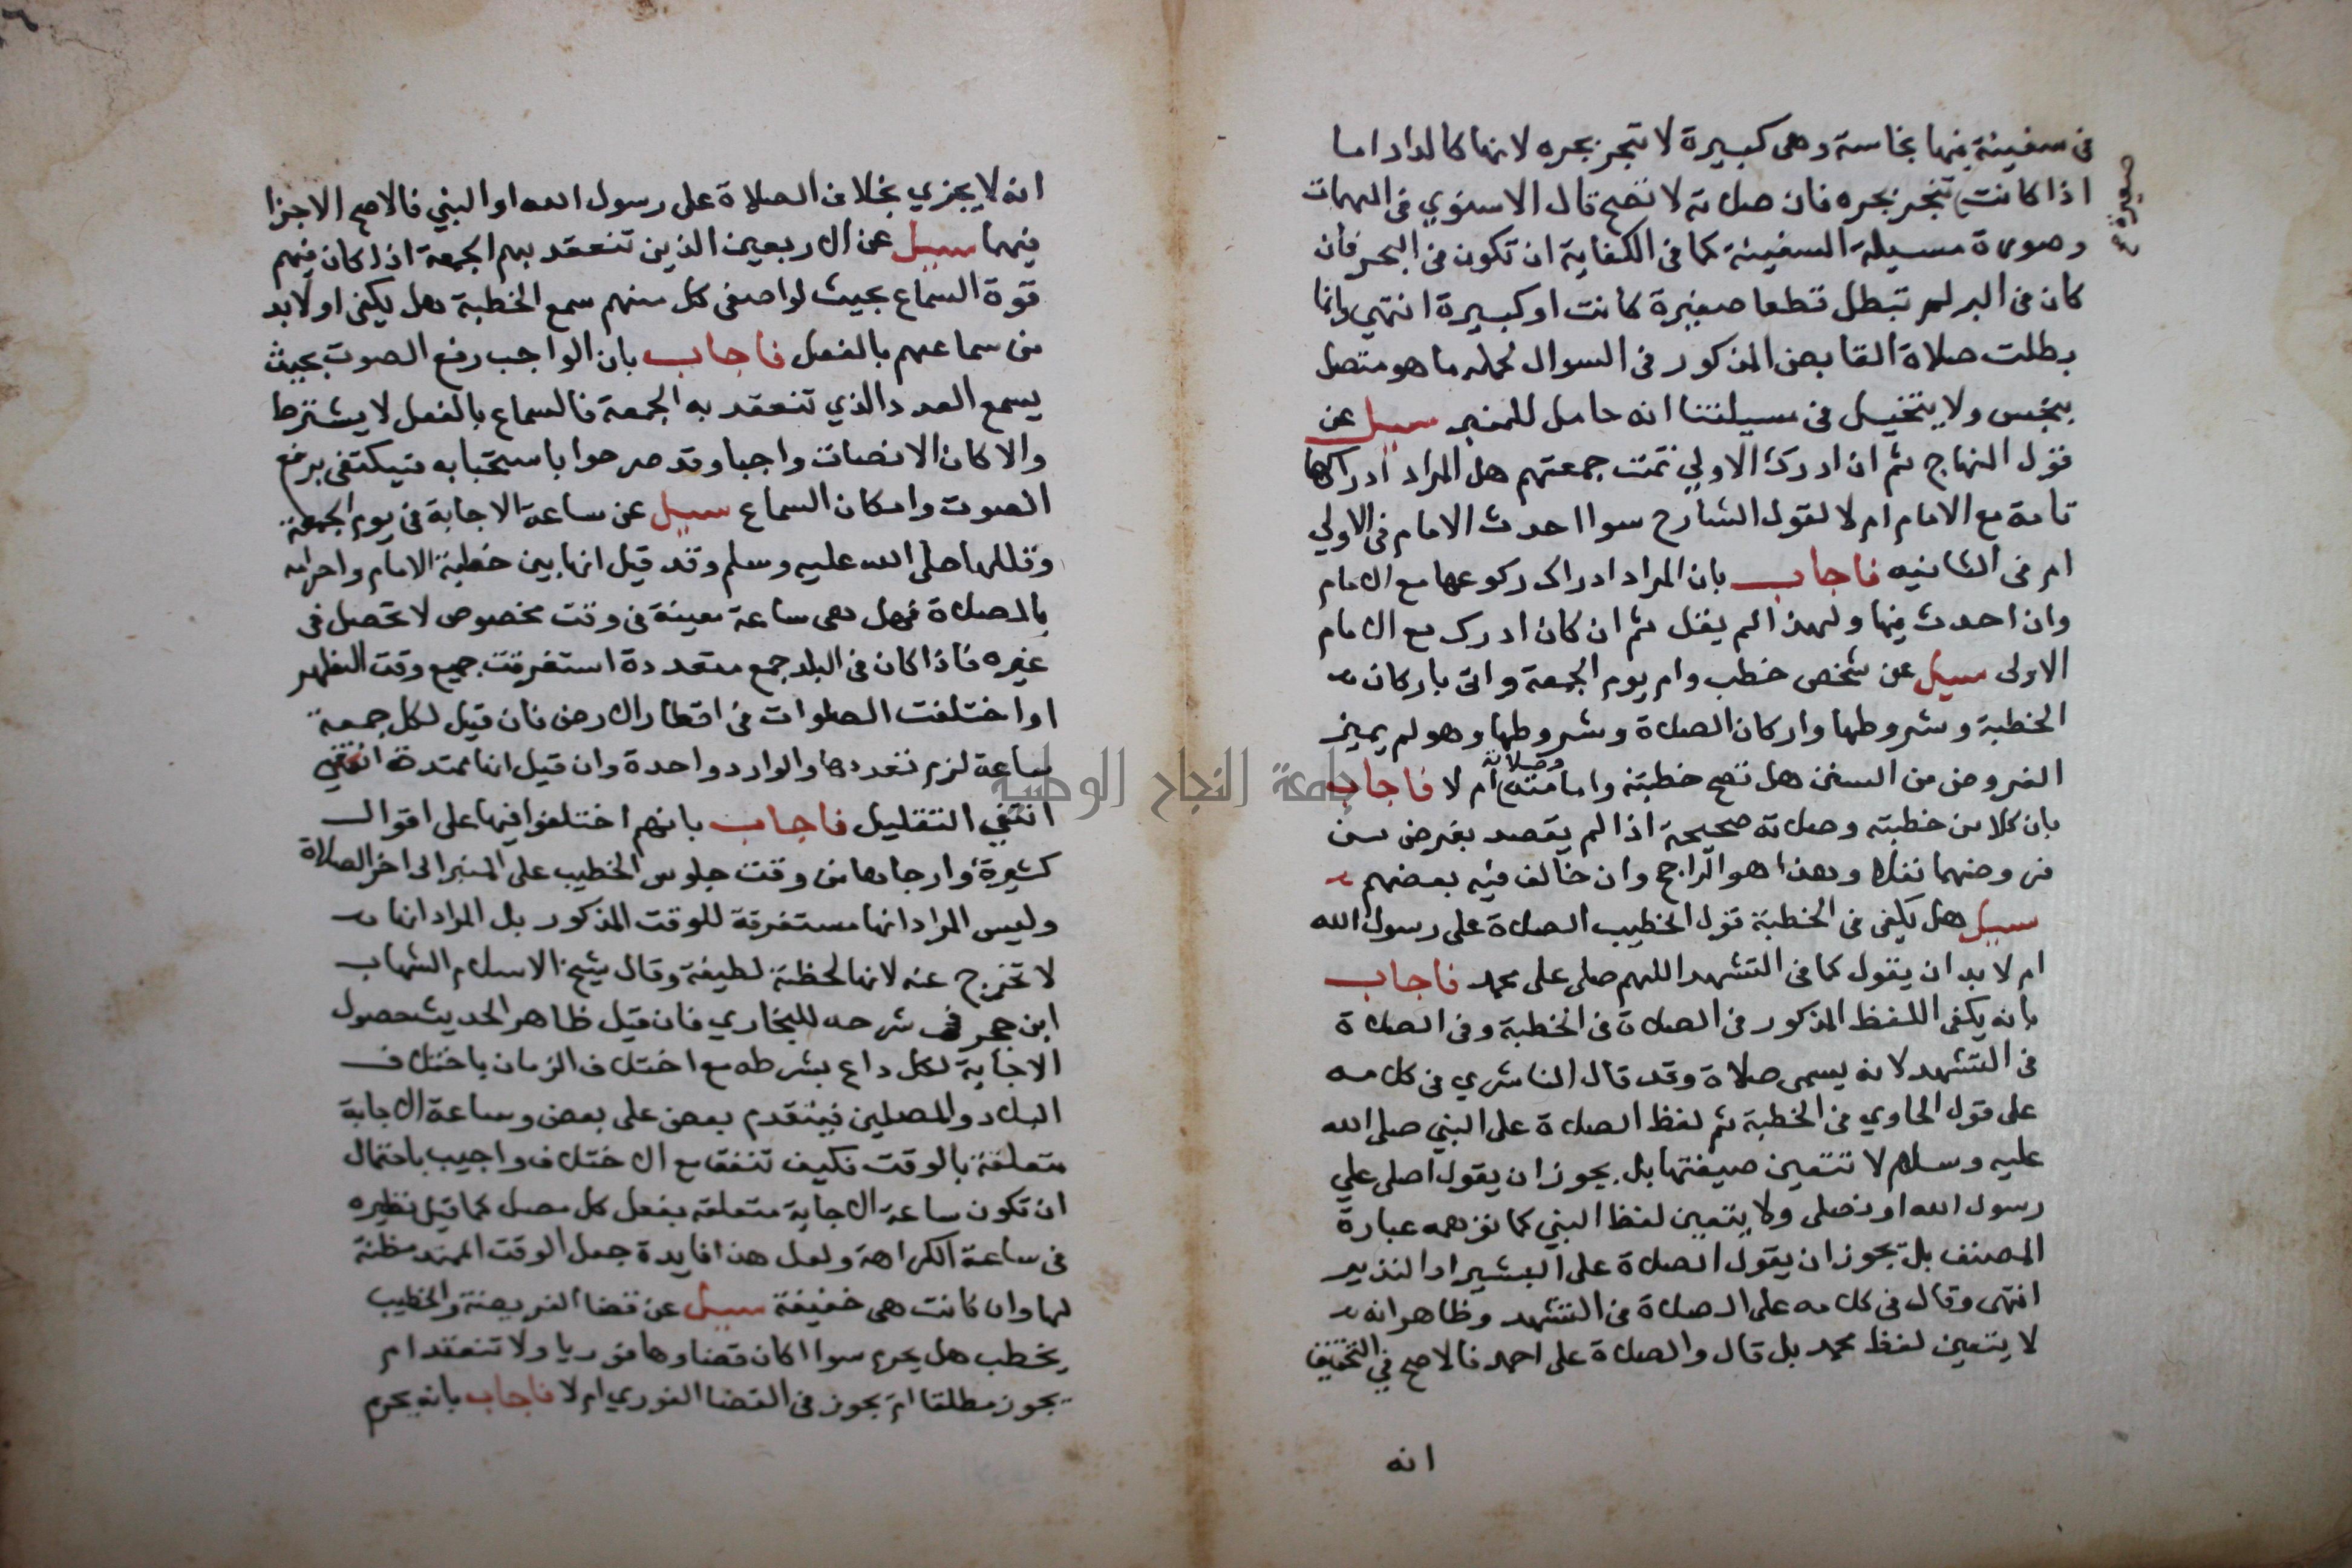 في سفينة فيها نجاسة وهي كبيرة لا تنجر بجره لانها كالدار اما
اذا كانت تنجر بجره فان صلاته لا تصح قال الاسنوي في المهمات
صغيرة ع
وصورة مسيلة السفينة كما في الكفاية ان تكون في البحر فان
كان في البر لم تبطل قطعا صغيرة كانت او كبيرة انتهى وانما
بطلت صلاة القابض المذكور في السوال لحمله ما هو متصل
بنجس ولا يتخيل في مسيلتنا انه حامل للمنبر سيل عن
قول المنهاج ثم ان ادرك الاولي تمت جمعتهم هل المراد ادراكها
تامة مع الامام ام لا لقول الشارح سوا احدث الامام في الاولي
ام في الثانيه فاجاب بان المراد ادراك ركوعها مع الامام
وان احدث فيها ولهذا لم يقل ثم ان كان ادرك مع الامام
الاولى سيل عن شخص خطب وام يوم الجمعة واتى باركان
الخطبة وشروطها واركان الصلاة وشروطها وهو لم يميز
الفروض من السنن هل تصح خطبته وامامته وصلاته ام لا فاجاب
بان كلا من خطبته وصلاته صحيحة اذا لم يقصد بفرض من
فروضهما نفلا وهذا هو الراجح وان خالف فيه بعضهم
سيل هل يكفي في الخطبة قول الخطيب الصلاة على رسول الله
ام لا بد ان يقول كما في التشهد اللهم صلى على محمد فاجاب
بانه يكفي اللفظ المذكور في الصلاة في الخطبة وفي الصلاة
في التشهد لانه يسمى صلاة وقد قال الناشري في كلامه
على قول الحاوي في الخطبة ثم لفظ الصلاة على النبي صلى الله
عليه وسلم لا تتعين صيغتها بل يجوز ان يقول اصلى علي
رسول الله او نصلى ولا يتعين لفظ النبي كما توهمه عبارة
المصنف بل يجوز ان يقول الصلاة على البشير او النذير
انتهى وقال في كلامه على الصلاة في التشهد وظاهر انه
لا يتعين لفظ محمد بل قال والصلاة على احمد فالاصح في التحقيق
انه
انه لا يجزي بخلاف الصلاة على رسول الله او النبي فالاصح الاجزا
فيهما سيل عن الاربعين الذين تنعقد بهم الجمعة اذا كان فيهم
قوة السماع بحيث لو اصغى كل منهم سمع الخطبة هل يكفي او لا بد
من سماعهم بالفعل فاجاب بان الواجب رفع الصوت بحيث
يسمع العدد الذي تنعقد به الجمعة فالسماع بالفعل لا يشترط
والا كان الانصات واجبا وقد صرحوا باستحبابه فيكتفى برفع
الصوت وامكان السماع سيل عن ساعة الاجابة في يوم الجمعة
وقللها صلى الله عليه وسلم وقد قيل انها بين خطبة الامام واحرامه
بالصلاة فهل هي ساعة معينة في وقت مخصوص لا تحصل في
غيره فاذا كان في البلد جمع متعددة استغرقت جميع وقت الظهر
او اختلفت الصلوات في اقطار الارض فان قيل لكل جمعة
ساعة لزم تعددها والوارد واحدة وان قيل انها ممتدة
انتفي التقليل فاجاب بانهم اختلفوا فيها على اقوال
كثيرة وارجاها من وقت جلوس الخطيب على المنبر الى اخر الصلاة
وليس المراد انها مستغرقة للوقت المذكور بل المراد انها
لا تخرج عنه لانها لحظة لطيفة وقال شيخ الاسلام الشهاب
ابن حجر في شرحه للبخاري فان قيل ظاهر الحديث حصول
الاجابة لكل داع بشرطه مع اختلاف الزمان باختلاف
البلاد والمصلين فيتقدم بعض على بعض وساعة الاجابة
متعلقة بالوقت فكيف تتفق مع الاختلاف واجيب باحتمال
ان تكون ساعة الاجابة متعلقة بفعل كل مصل كما قيل نظيره
في ساعة الكراهة ولعل هذا فايدة جعل الوقت الممتد مظنة
لها وان كانت هي خفيفة سيل عن قضا الفريضة والخطيب
يخطب هل يحرم سوا اكان قضاوها فوريا ولا تنعقد ام
يجوز مطلقا ام يجوز في القضا الفوري ام لا فاجاب بانه يحرم
جامعة النجاح الوطنية